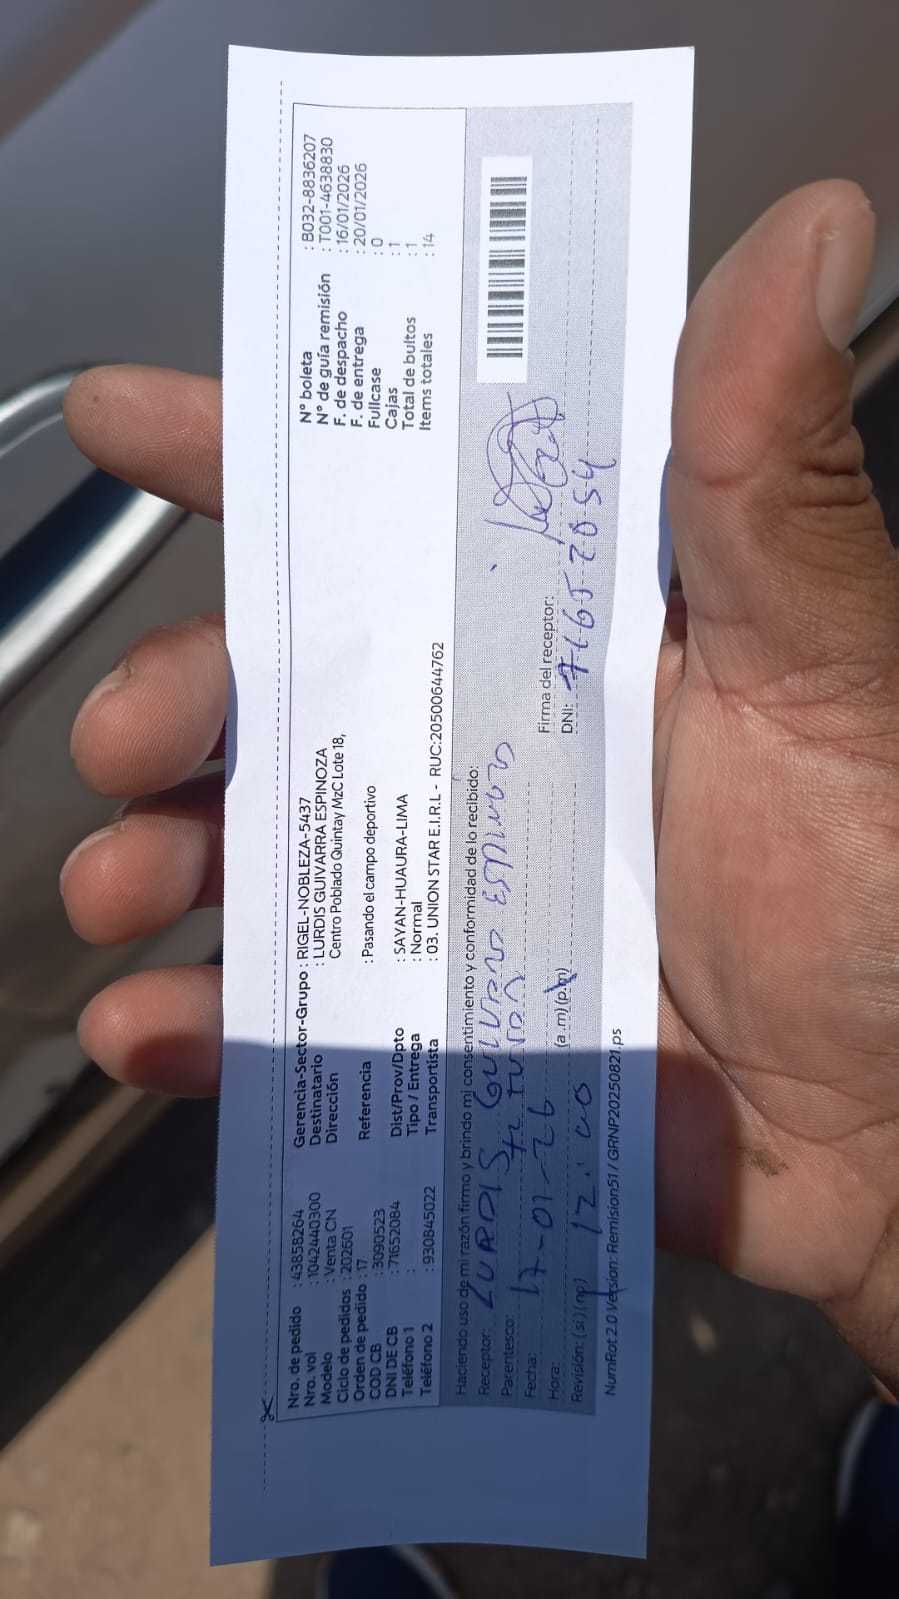 Nro. de pedido : 43858264
Nro. vol : 1042440300
Modelo : Venta CN
Ciclo de pedidos : 202601
Orden de pedido : 17
COD CB : 3090523
DNI DE CB : 71652084
Teléfono 1 :
Teléfono 2 : 930845022
Gerencia-Sector-Grupo : RIGEL-NOBLEZA-5437
Destinatario : LURDIS GUIVARRA ESPINOZA
Dirección Centro Poblado Quintay MzC Lote 18,
Referencia : Pasando el campo deportivo
Dist/Prov/Dpto : SAYAN-HUAURA-LIMA
Tipo / Entrega : Normal
Transportista : 03. UNION STAR E.I.R.L - RUC:20500644762
N° boleta : B032-8836207
N° de guía remisión : T001-4638830
F. de despacho : 16/01/2026
F. de entrega : 20/01/2026
Fullcase : 0
Cajas : 1
Total de bultos : 1
Items totales : 14
Haciendo uso de mi razón firmo y brindo mi consentimiento y conformidad de lo recibido:
Receptor: LURDIS GUIVARA ESPINOZA
Parentesco: TITULAR
Fecha: 17-01-26
Hora: 12:00 (a .m) (p.m)
Revisión: (si) (np)
Firma del receptor:
DNI: 71652054
NumRot 2.0 Version: Remision51 / GRNP20250821.ps